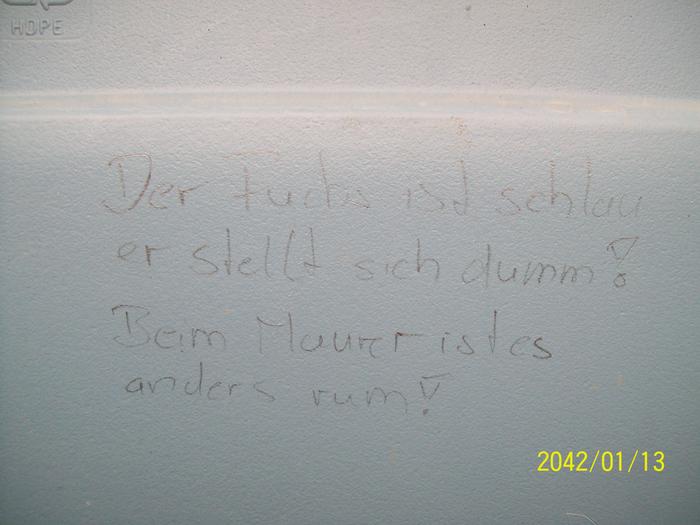 HDPE
Der Fuchs ist schlau
er stellt sich dumm!
Beim Maurer ist es
anders rum!
2042/01/13